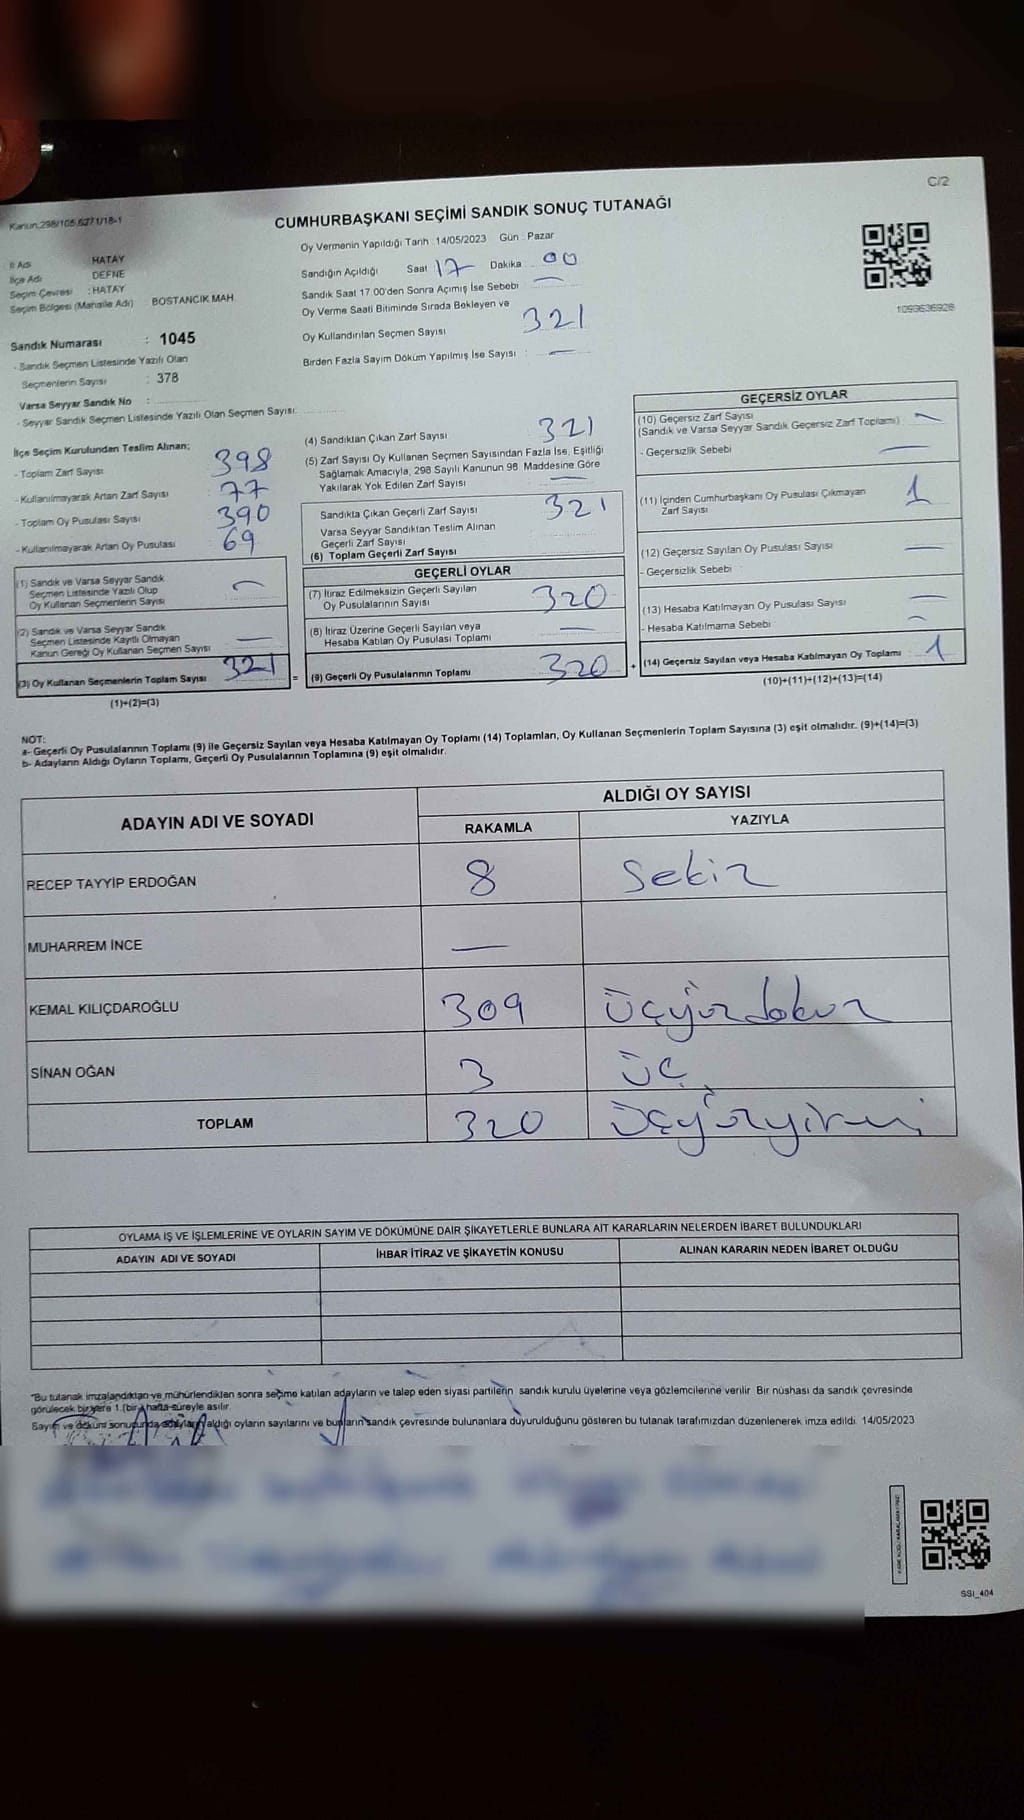 C/2
Kanun:298/105,6271/18-1
CUMHURBAŞKANI SEÇİMİ SANDIK SONUÇ TUTANAĞI
Oy Vermenin Yapıldığı Tarih :14/05/2023 Gün : Pazar
İl Adı HATAY
İlçe Adı DEFNE
Seçim Çevresi : HATAY
Seçim Bölgesi (Mahalle Adı) BOSTANCIK MAH.
Sandığın Açıldığı Saat 17 Dakika 00
Sandık Saat 17.00'den Sonra Açılmış İse Sebebi —
Oy Verme Saati Bitiminde Sırada Bekleyen ve
Oy Kullandırılan Seçmen Sayısı 321
Birden Fazla Sayım Döküm Yapılmış İse Sayısı : —
1099636928
Sandık Numarası : 1045
- Sandık Seçmen Listesinde Yazılı Olan
Seçmenlerin Sayısı : 378
Varsa Seyyar Sandık No :
- Seyyar Sandık Seçmen Listesinde Yazılı Olan Seçmen Sayısı:
İlçe Seçim Kurulundan Teslim Alınan;
- Toplam Zarf Sayısı 398
- Kullanılmayarak Artan Zarf Sayısı 77
- Toplam Oy Pusulası Sayısı 390
- Kullanılmayarak Artan Oy Pusulası : 69
(1) Sandık ve Varsa Seyyar Sandık
Seçmen Listesinde Yazılı Olup
Oy Kullanan Seçmenlerin Sayısı : —
(2) Sandık ve Varsa Seyyar Sandık
Seçmen Listesinde Kayıtlı Olmayan
Kanun Gereği Oy Kullanan Seçmen Sayısı —
(3) Oy Kullanan Seçmenlerin Toplam Sayısı 321
(1)+(2)=(3)
(4) Sandıktan Çıkan Zarf Sayısı 321
(5) Zarf Sayısı Oy Kullanan Seçmen Sayısından Fazla İse, Eşitliği
Sağlamak Amacıyla, 298 Sayılı Kanunun 98 Maddesine Göre
Yakılarak Yok Edilen Zarf Sayısı —
Sandıkta Çıkan Geçerli Zarf Sayısı 321
Varsa Seyyar Sandıktan Teslim Alınan
Geçerli Zarf Sayısı
(6) Toplam Geçerli Zarf Sayısı
GEÇERLİ OYLAR
(7) İtiraz Edilmeksizin Geçerli Sayılan
Oy Pusulalarının Sayısı 320
(8) İtiraz Üzerine Geçerli Sayılan veya
Hesaba Katılan Oy Pusulası Toplamı —
= (9) Geçerli Oy Pusulalarının Toplamı 320 +
GEÇERSİZ OYLAR
(10) Geçersiz Zarf Sayısı —
(Sandık ve Varsa Seyyar Sandık Geçersiz Zarf Toplamı)
- Geçersizlik Sebebi —
(11) İçinden Cumhurbaşkanı Oy Pusulası Çıkmayan
Zarf Sayısı 1
(12) Geçersiz Sayılan Oy Pusulası Sayısı —
- Geçersizlik Sebebi :
(13) Hesaba Katılmayan Oy Pusulası Sayısı —
- Hesaba Katılmama Sebebi —
(14) Geçersiz Sayılan veya Hesaba Katılmayan Oy Toplamı : 1
(10)+(11)+(12)+(13)=(14)
NOT:
a- Geçerli Oy Pusulalarının Toplamı (9) ile Geçersiz Sayılan veya Hesaba Katılmayan Oy Toplamı (14) Toplamları, Oy Kullanan Seçmenlerin Toplam Sayısına (3) eşit olmalıdır. (9)+(14)=(3)
b- Adayların Aldığı Oyların Toplamı, Geçerli Oy Pusulalarının Toplamına (9) eşit olmalıdır.
ADAYIN ADI VE SOYADI ALDIĞI OY SAYISI
RAKAMLA YAZIYLA
RECEP TAYYİP ERDOĞAN 8 Sekiz
MUHARREM İNCE —
KEMAL KILIÇDAROĞLU 309 Üçyüzdokuz
SİNAN OĞAN 3 Üç
TOPLAM 320 Üçyüzyirmi
OYLAMA İŞ VE İŞLEMLERİNE VE OYLARIN SAYIM VE DÖKÜMÜNE DAİR ŞİKAYETLERLE BUNLARA AİT KARARLARIN NELERDEN İBARET BULUNDUKLARI
ADAYIN ADI VE SOYADI İHBAR İTİRAZ VE ŞİKAYETİN KONUSU ALINAN KARARIN NEDEN İBARET OLDUĞU
"Bu tutanak imzalandıktan ve mühürlendikten sonra seçime katılan adayların ve talep eden siyasi partilerin sandık kurulu üyelerine veya gözlemcilerine verilir. Bir nüshası da sandık çevresinde
görülecek bir yere 1 (bir) hafta süreyle asılır.
Sayım ve döküm sonucunda adayların aldığı oyların sayılarını ve bunların sandık çevresinde bulunanlara duyurulduğunu gösteren bu tutanak tarafımızdan düzenlenerek imza edildi. 14/05/2023
SSI_404